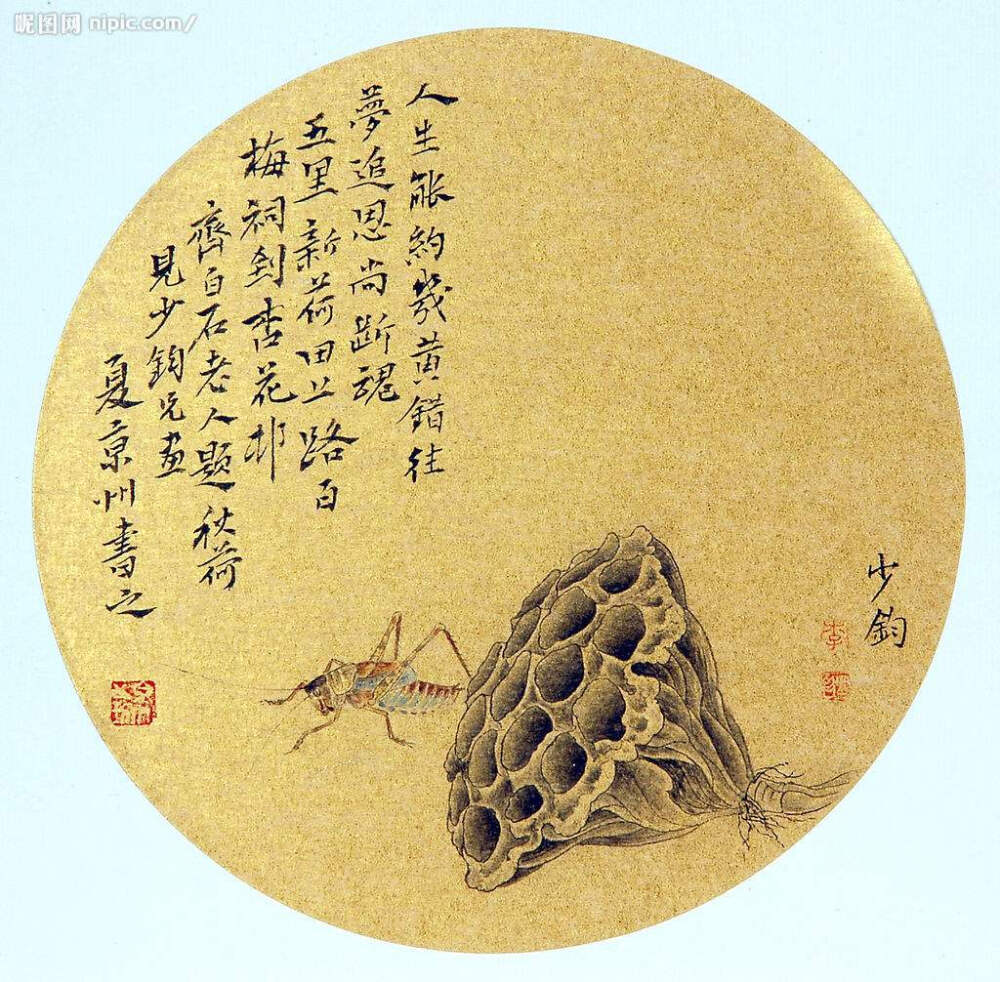 昵图网 nipic.com/
少鈞
人生能約幾黄錯往
夢追恩尚斷魂
五里新荷田上路百
梅祠到杏花邨
齊白石老人題秋荷
見少鈞兄畫
夏京州書之